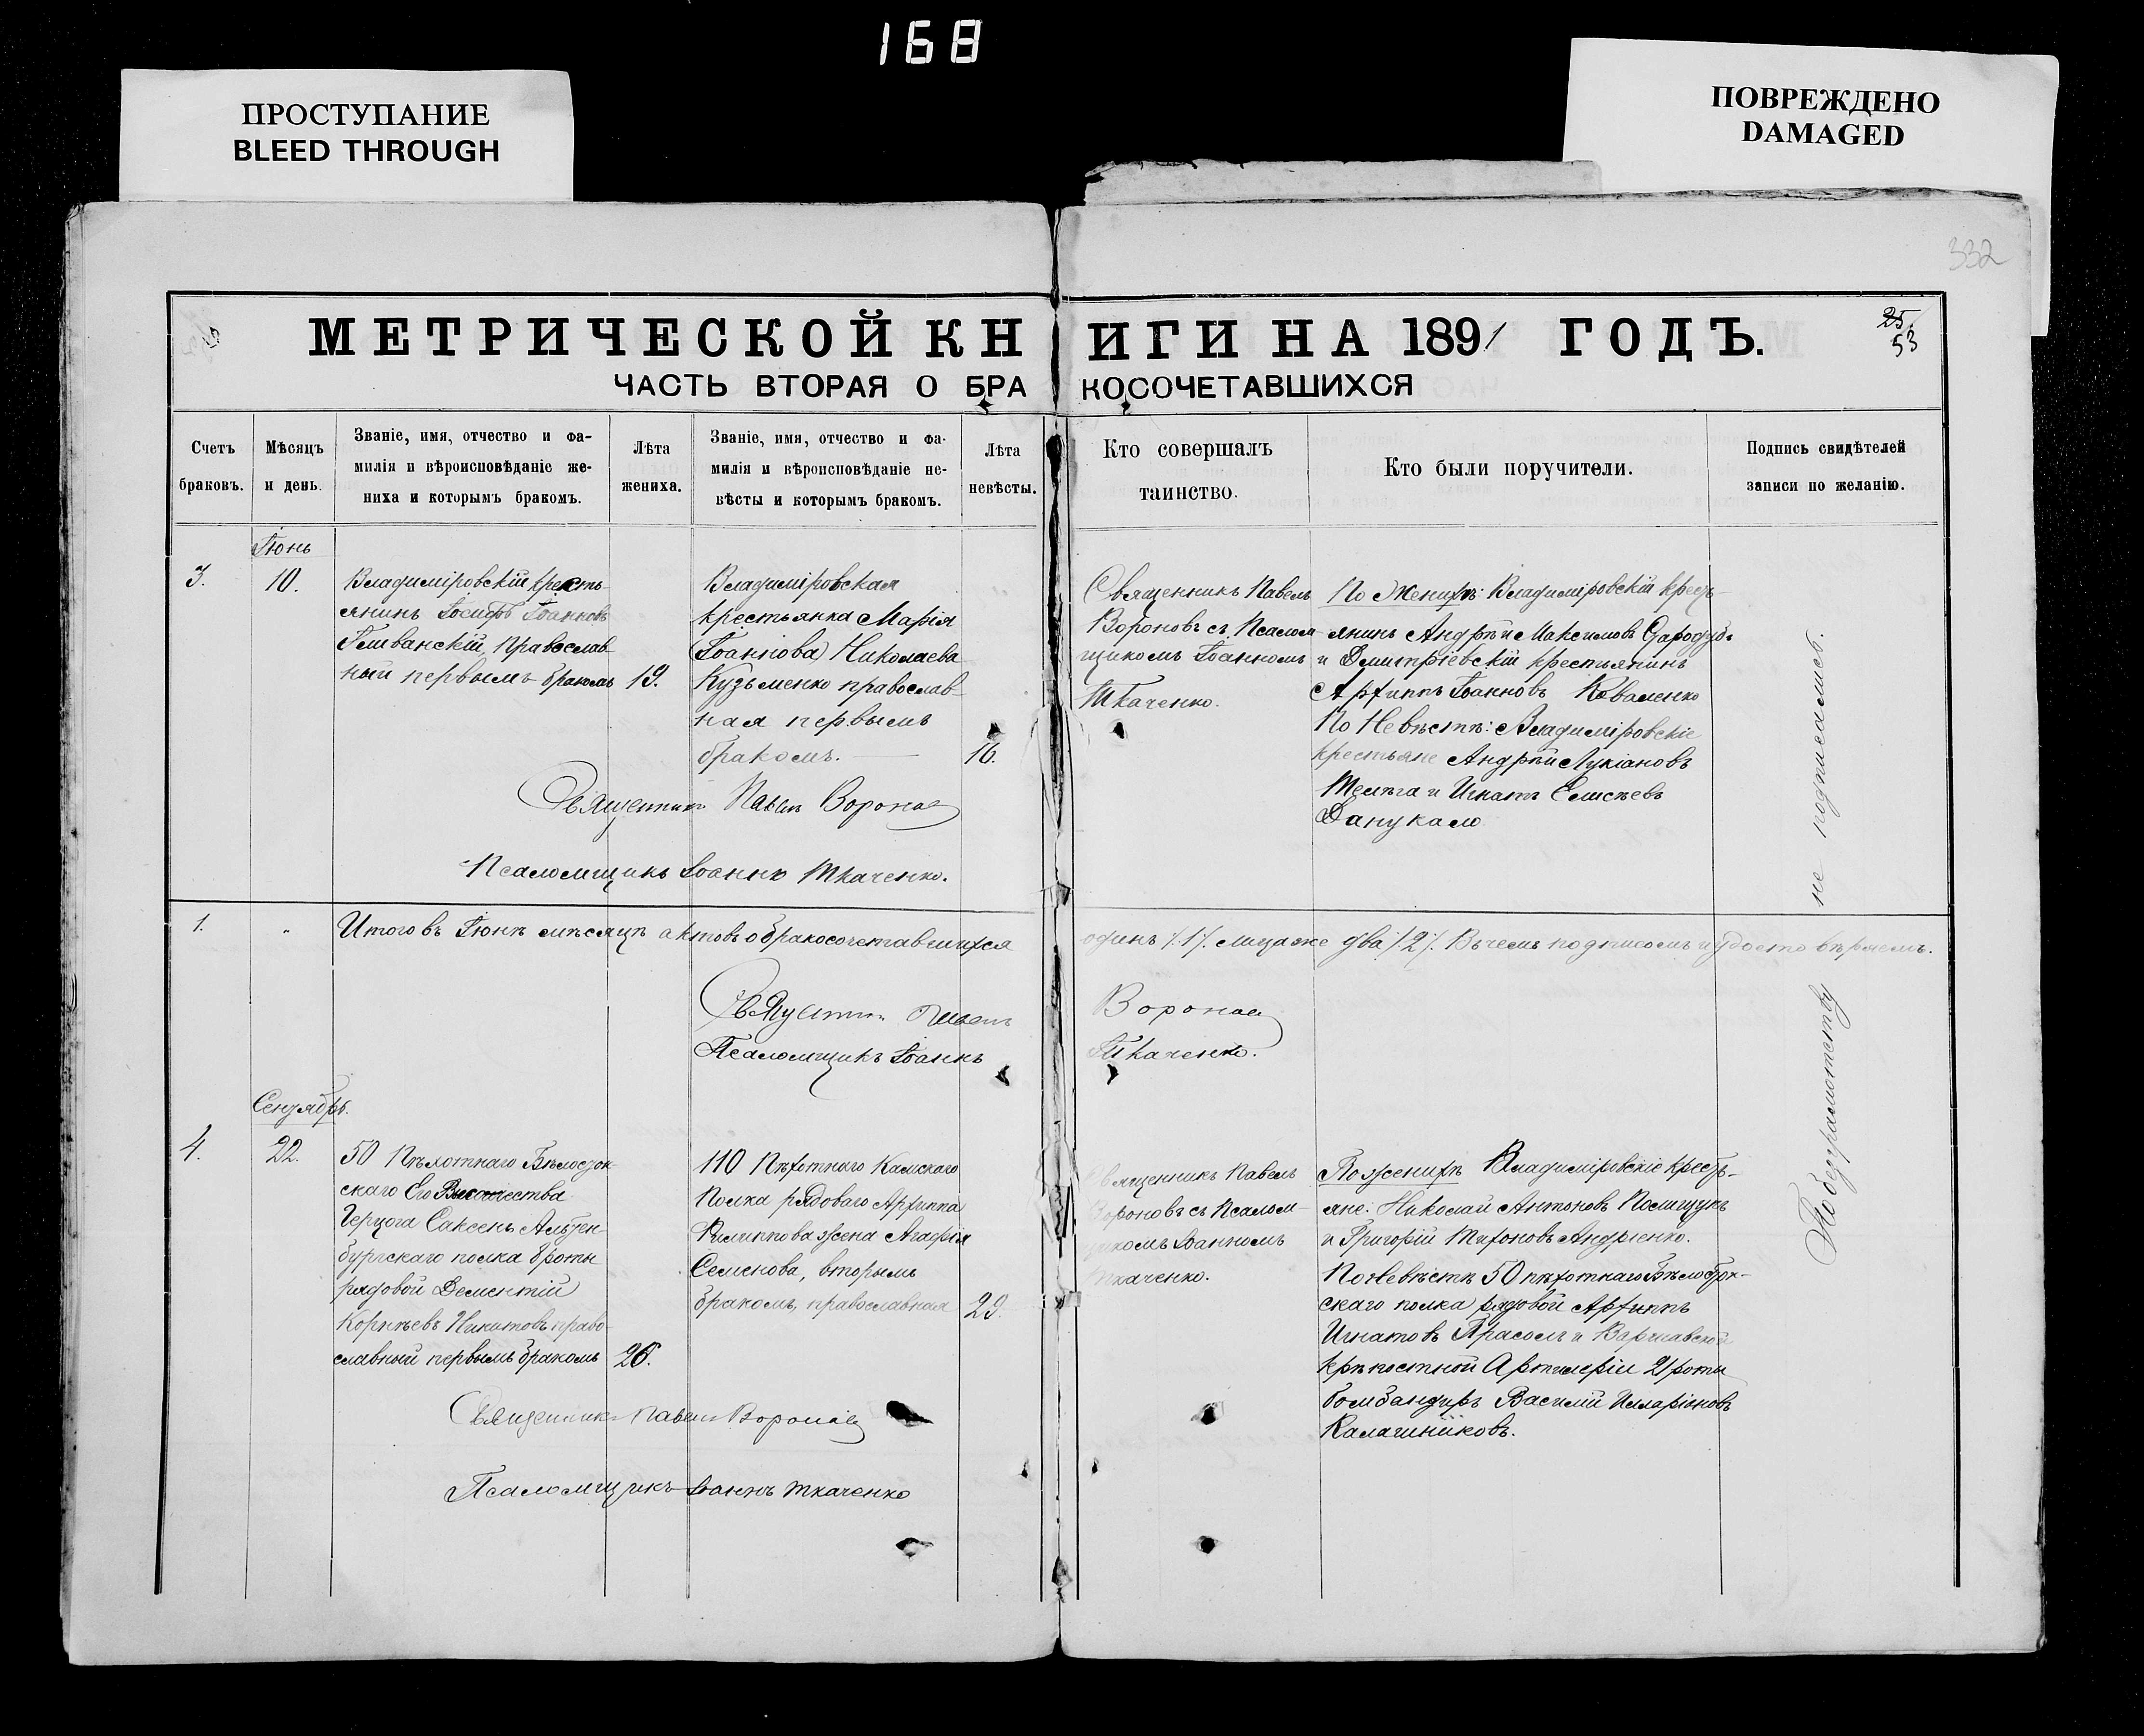 168
ПРОСТУПАНИЕ
BLEED THROUGH
ПОВРЕЖДЕНО
DAMAGED
332
МЕТРИЧЕСКОЙ КНИГИ НА 1891 ГОДЪ.
25.
53
ЧАСТЬ ВТОРАЯ О БРАКОСОЧЕТАВШИХСЯ
Счетъ
браковъ.
Мѣсяцъ
и день.
Званіе, имя, отчество и фа-
милія и вѣроисповѣданіе же-
ниха и которымъ бракомъ.
Лѣта
жениха.
Званіе, имя, отчество и фа-
милія и вѣроисповѣданіе не-
вѣсты и которымъ бракомъ.
Лѣта
невѣсты.
Кто совершалъ
таинство.
Кто были поручители.
Подпись свидѣтелей
записи по желанію.
Іюнь
3.
10.
Владиміровскій кресть-
янинъ Іосифъ Іоанновъ
Православ-
ный первымъ бракомъ
19.
Владиміровская
крестьянка Марія
Іоаннова Николаева
Кузьменко православ-
ная первымъ
бракомъ.
16.
Священникъ Павелъ
Вороновъ съ Псалом-
щикомъ Іоанномъ
Ткаченко.
По Женихѣ: Владиміровскій крест-
янинъ Андрей Максимовъ
и Дмитріевскій крестьянинъ
Архиппъ Іоанновъ Коваленко
По Невѣстѣ: Владиміровскіе
крестьяне Андрей Лукіановъ
Телѣга и Игнатъ Елисѣевъ
Данукало
Священникъ Павелъ Вороновъ
Псаломщикъ Іоаннъ Ткаченко.
1.
"
Итого въ Іюнѣ мѣсяцѣ актовъ о бракосочетавшихся одинъ /1/. лицъ же два /2/. Въ чемъ подписомъ и удостовѣряемъ.
Священникъ Павелъ Вороновъ
Псаломщикъ Іоаннъ Ткаченко.
Сентябрь.
4.
22.
50 Пѣхотнаго Бѣлосток-
скаго Его Высочества
Герцога Саксенъ Альтен-
бургскаго полка 8 роты
рядовой Дементій
Корнѣевъ Никитовъ право-
славный первымъ бракомъ
26.
110 Пѣхотнаго Камскаго
Полка рядоваго Архиппа
Филиппова жена Агафія
Семенова, вторымъ
бракомъ, православная
29.
Священникъ Павелъ
Вороновъ съ Псалом-
щикомъ Іоанномъ
Ткаченко.
По женихѣ Владиміровскіе крест-
яне: Николай Антоновъ Полищукъ
и Григорій Тихоновъ Андріенко.
По Невѣстѣ 50 пѣхотнаго Бѣлосток-
скаго полка рядовой Архиппъ
Игнатовъ Прасолъ и Варшавской
крѣпостной Артилеріи 21 роты
бомбандиръ Василій Илларіоновъ
Калашниковъ.
Священникъ Павелъ Вороновъ
Псаломщикъ Іоаннъ Ткаченко
По безграмотству не подписались.